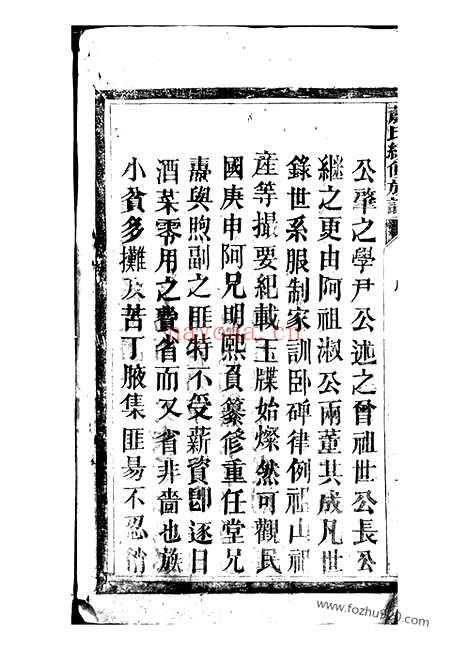 公肇之學尹公述之曾祖世公長公
繼之更由阿祖淑公兩董其成凡世
錄世系服制家訓臥碑律例祖山祖
產等撮要紀載玉牒始燦然可觀民
國庚申阿兄期熙負纂修重任堂兄
燾與煦副之匪特不受薪資即逐日
酒菜零用之費省而又省非嗇也族
小貧多攤派苦丁腋集匪易不忍消
nayona.cn
www.fozhu920.com